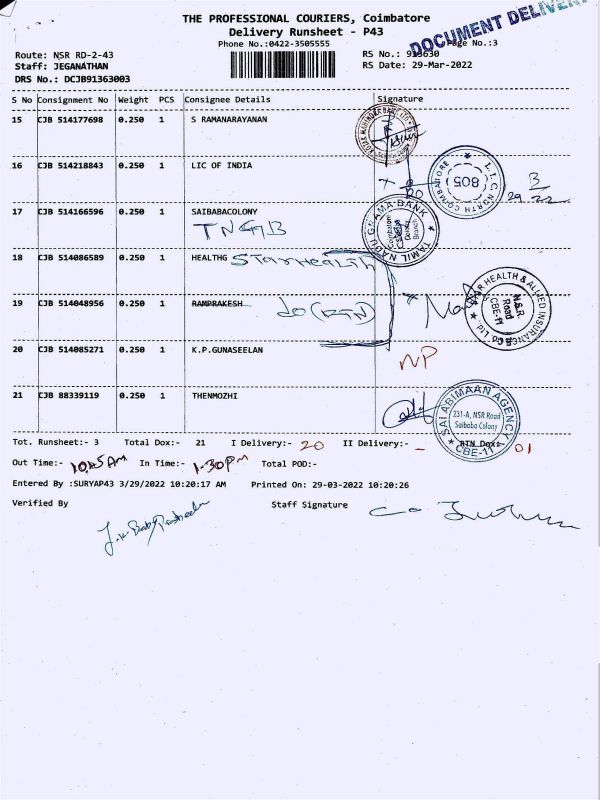 THE PROFESSIONAL COURIERS, Coimbatore
DOCUMENT DELIVERY
Delivery Runsheet - P43
Phone No.:0422-3505555
Page No.:3
Route: NSR RD-2-43
RS No.: 913630
Staff: JEGANATHAN
RS Date: 29-Mar-2022
DRS No.: DCJB91363003
S No Consignment No Weight PCS Consignee Details Signature
15 CJB 514177698 0.250 1 S RAMANARAYANAN
16 CJB 514218843 0.250 1 LIC OF INDIA
L.I.C. NORTH COIMBATORE
805
17 CJB 514166596 0.250 1 SAIBABACOLONY
TNGB
TAMIL NADU GRAMA BANK
Coimbatore
Branch
18 CJB 514086589 0.250 1 HEALTHG STARHEALTH
STAR HEALTH & ALLIED INSURANCE Co. Ltd.
N.S.R. Road CBE-11
19 CJB 514048956 0.250 1 RAMPRAKESH do (RTN)
20 CJB 514085271 0.250 1 K.P.GUNASEELAN NP
21 CJB 88339119 0.250 1 THENMOZHI
SAI ABIMAAN AGENCY
231-A, NSR Road
Saibaba Colony
CBE-11
Tot. Runsheet:- 3 Total Dox:- 21 I Delivery:- 20 II Delivery:- - RTN Dox:- 01
Out Time:- 10.45AM In Time:- 1.30PM Total POD:-
Entered By :SURYAP43 3/29/2022 10:20:17 AM Printed On: 29-03-2022 10:20:26
Verified By Staff Signature